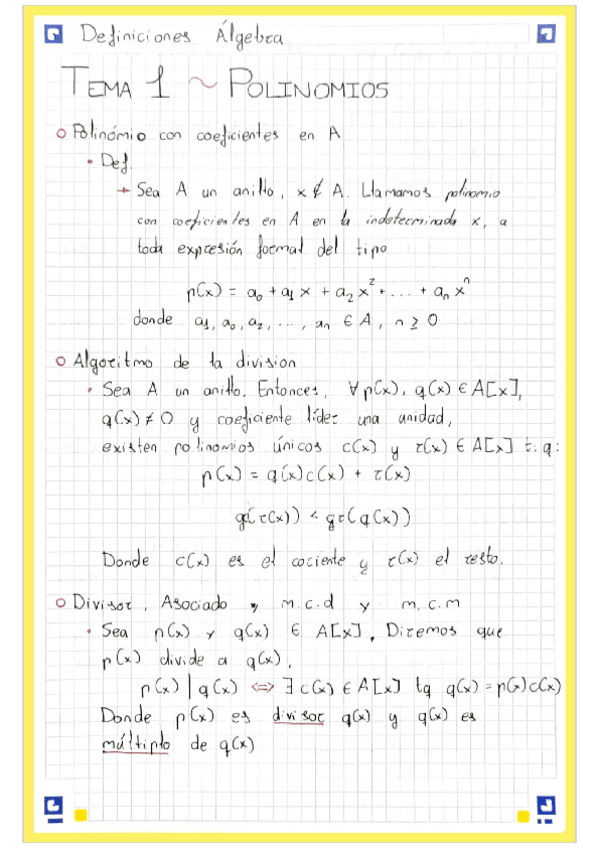 Definiciones Álgebra
TEMA 1 ~ POLINOMIOS
Polinómio con coeficientes en A
Def.
→ Sea A un anillo, x ∉ A. Llamamos polinomio
con coeficientes en A en la indeterminada x, a
toda expresión formal del tipo
p(x) = a₀ + a₁ x + a₂ x² + ... + aₙ xⁿ
donde a₁, a₀, a₂, ..., aₙ ∈ A, n ≥ 0
Algoritmo de la division
Sea A un anillo. Entonces, ∀ p(x), q(x) ∈ A[x],
q(x) ≠ 0 y coeficiente líder una unidad,
existen polinomios únicos c(x) y r(x) ∈ A[x] t.q:
p(x) = q(x)c(x) + r(x)
g(r(x)) < gr(q(x))
Donde c(x) es el cociente y r(x) el resto.
Divisor, Asociado, m.c.d y m.c.m
Sea p(x) y q(x) ∈ A[x], Diremos que
p(x) divide a q(x),
p(x) | q(x) <=> ∃ c(x) ∈ A[x] tq q(x) = p(x)c(x)
Donde p(x) es divisor q(x) y q(x) es
múltiplo de q(x)